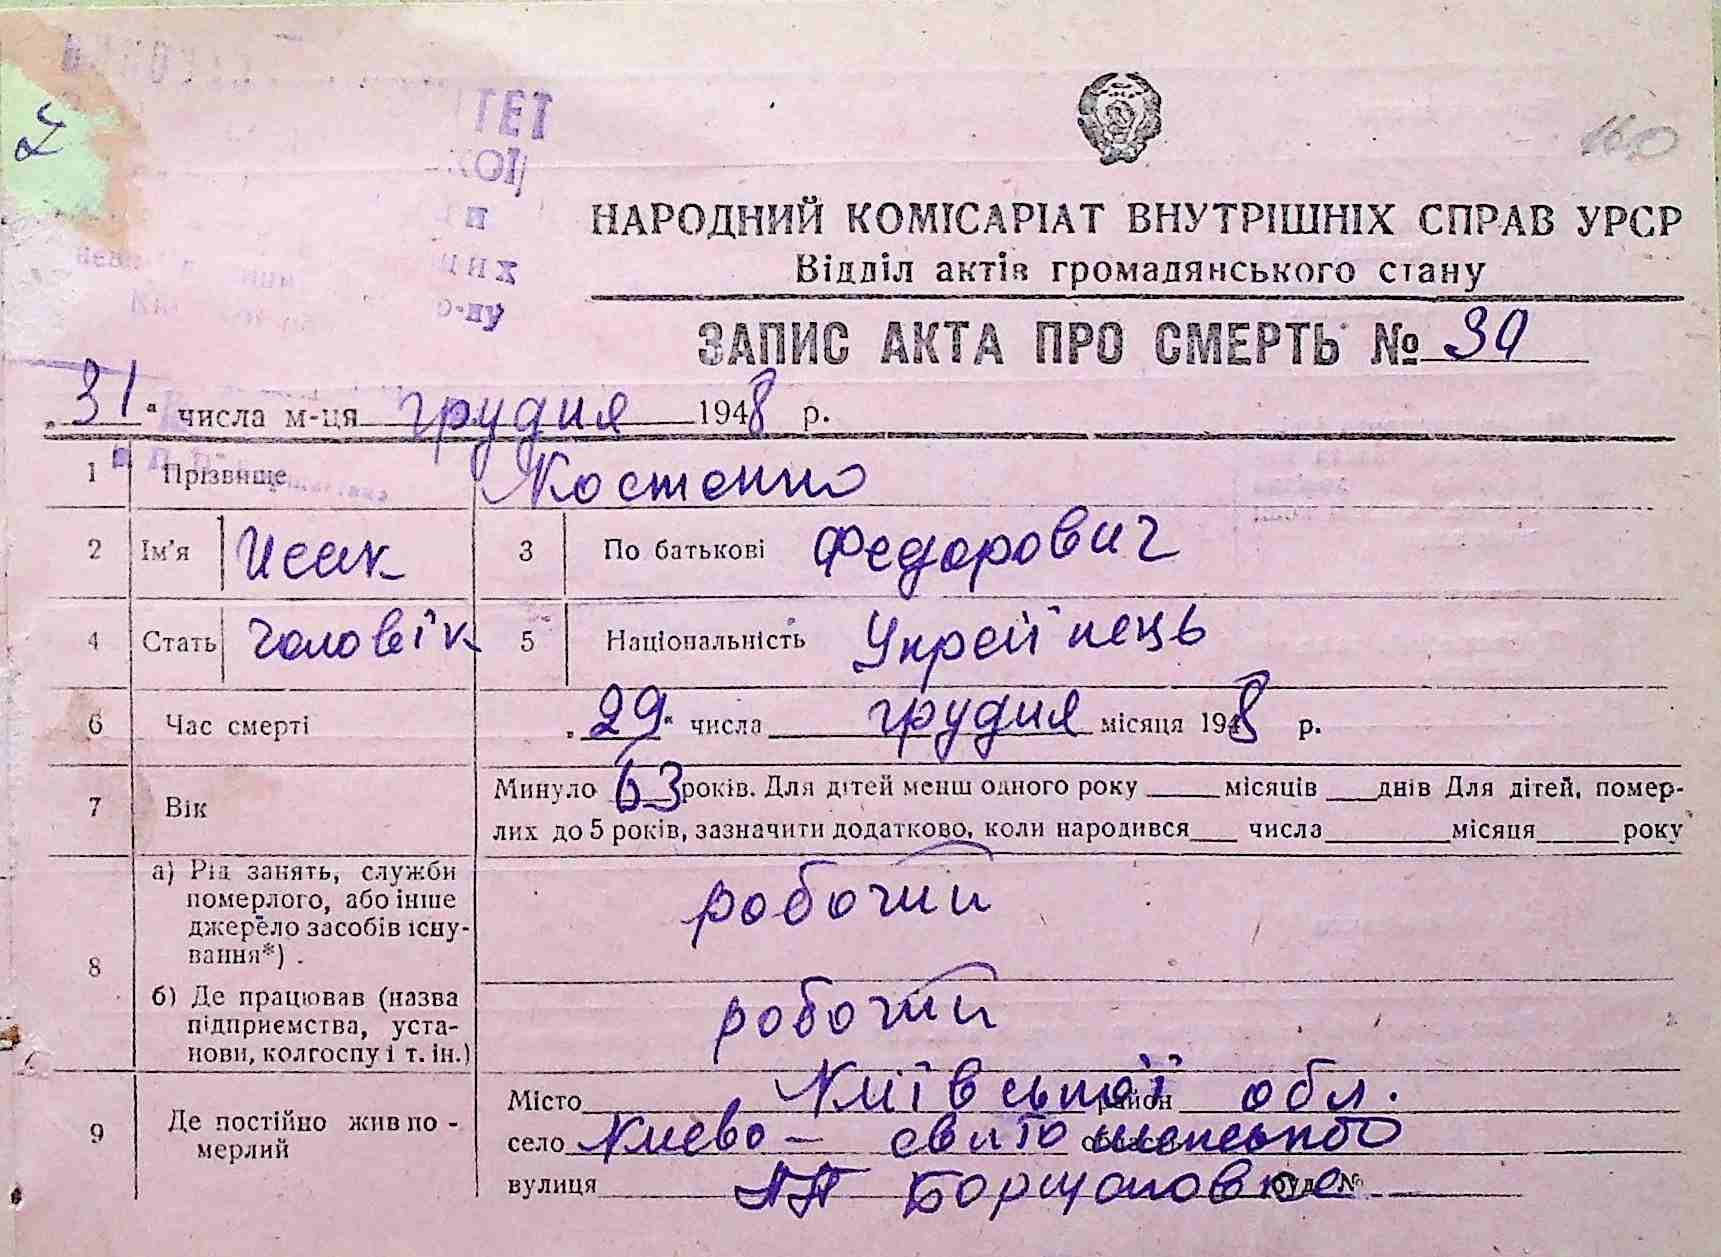 ТЕТ
160
КОЇ
НАРОДНИЙ КОМІСАРІАТ ВНУТРІШНІХ СПРАВ УРСР
Відділ актів громадянського стану
о-ну
ЗАПИС АКТА ПРО СМЕРТЬ № 30
„31“ числа м-ця грудня 1948 р.
1 Прізвище Костенко
2 Ім'я Исак 3 По батькові Федорович
4 Стать чоловік 5 Національність Українець
6 Час смерті „29“ числа грудня місяця 1948 р.
7 Вік Минуло 63 років. Для дітей менш одного року ___ місяців ___ днів Для дітей, помер-
лих до 5 років, зазначити додатково, коли народився ___ числа ___ місяця ___ року
8 а) Рід занять, служби
померлого, або інше
джерело засобів існу-
вання*) .
робочий
б) Де працював (назва
підприємства, уста-
нови, колгоспу і т. ін.)
робочий
9 Де постійно жив по-
мерлий
Місто Київської район обл.
село Києво – Святошенського область
вулиця Борщаговка буд. №